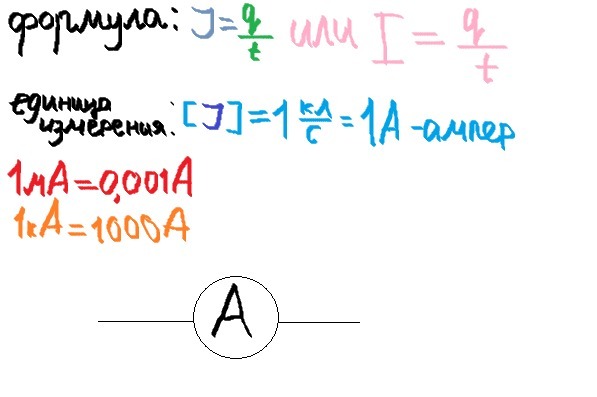 формула: J = q/t или I = q/t
единица
измерения: [J] = 1 кл/с = 1А - ампер
1мА = 0,001А
1кА = 1000А
А